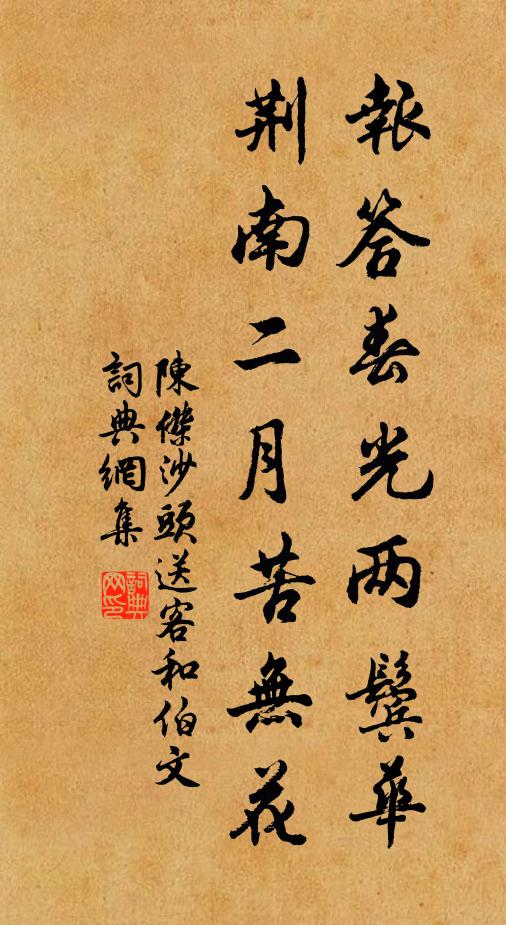 報答春光两鬓華
荆南二月苦無花
陳傑沙頭送客和伯文
詞典網集
詞典网印